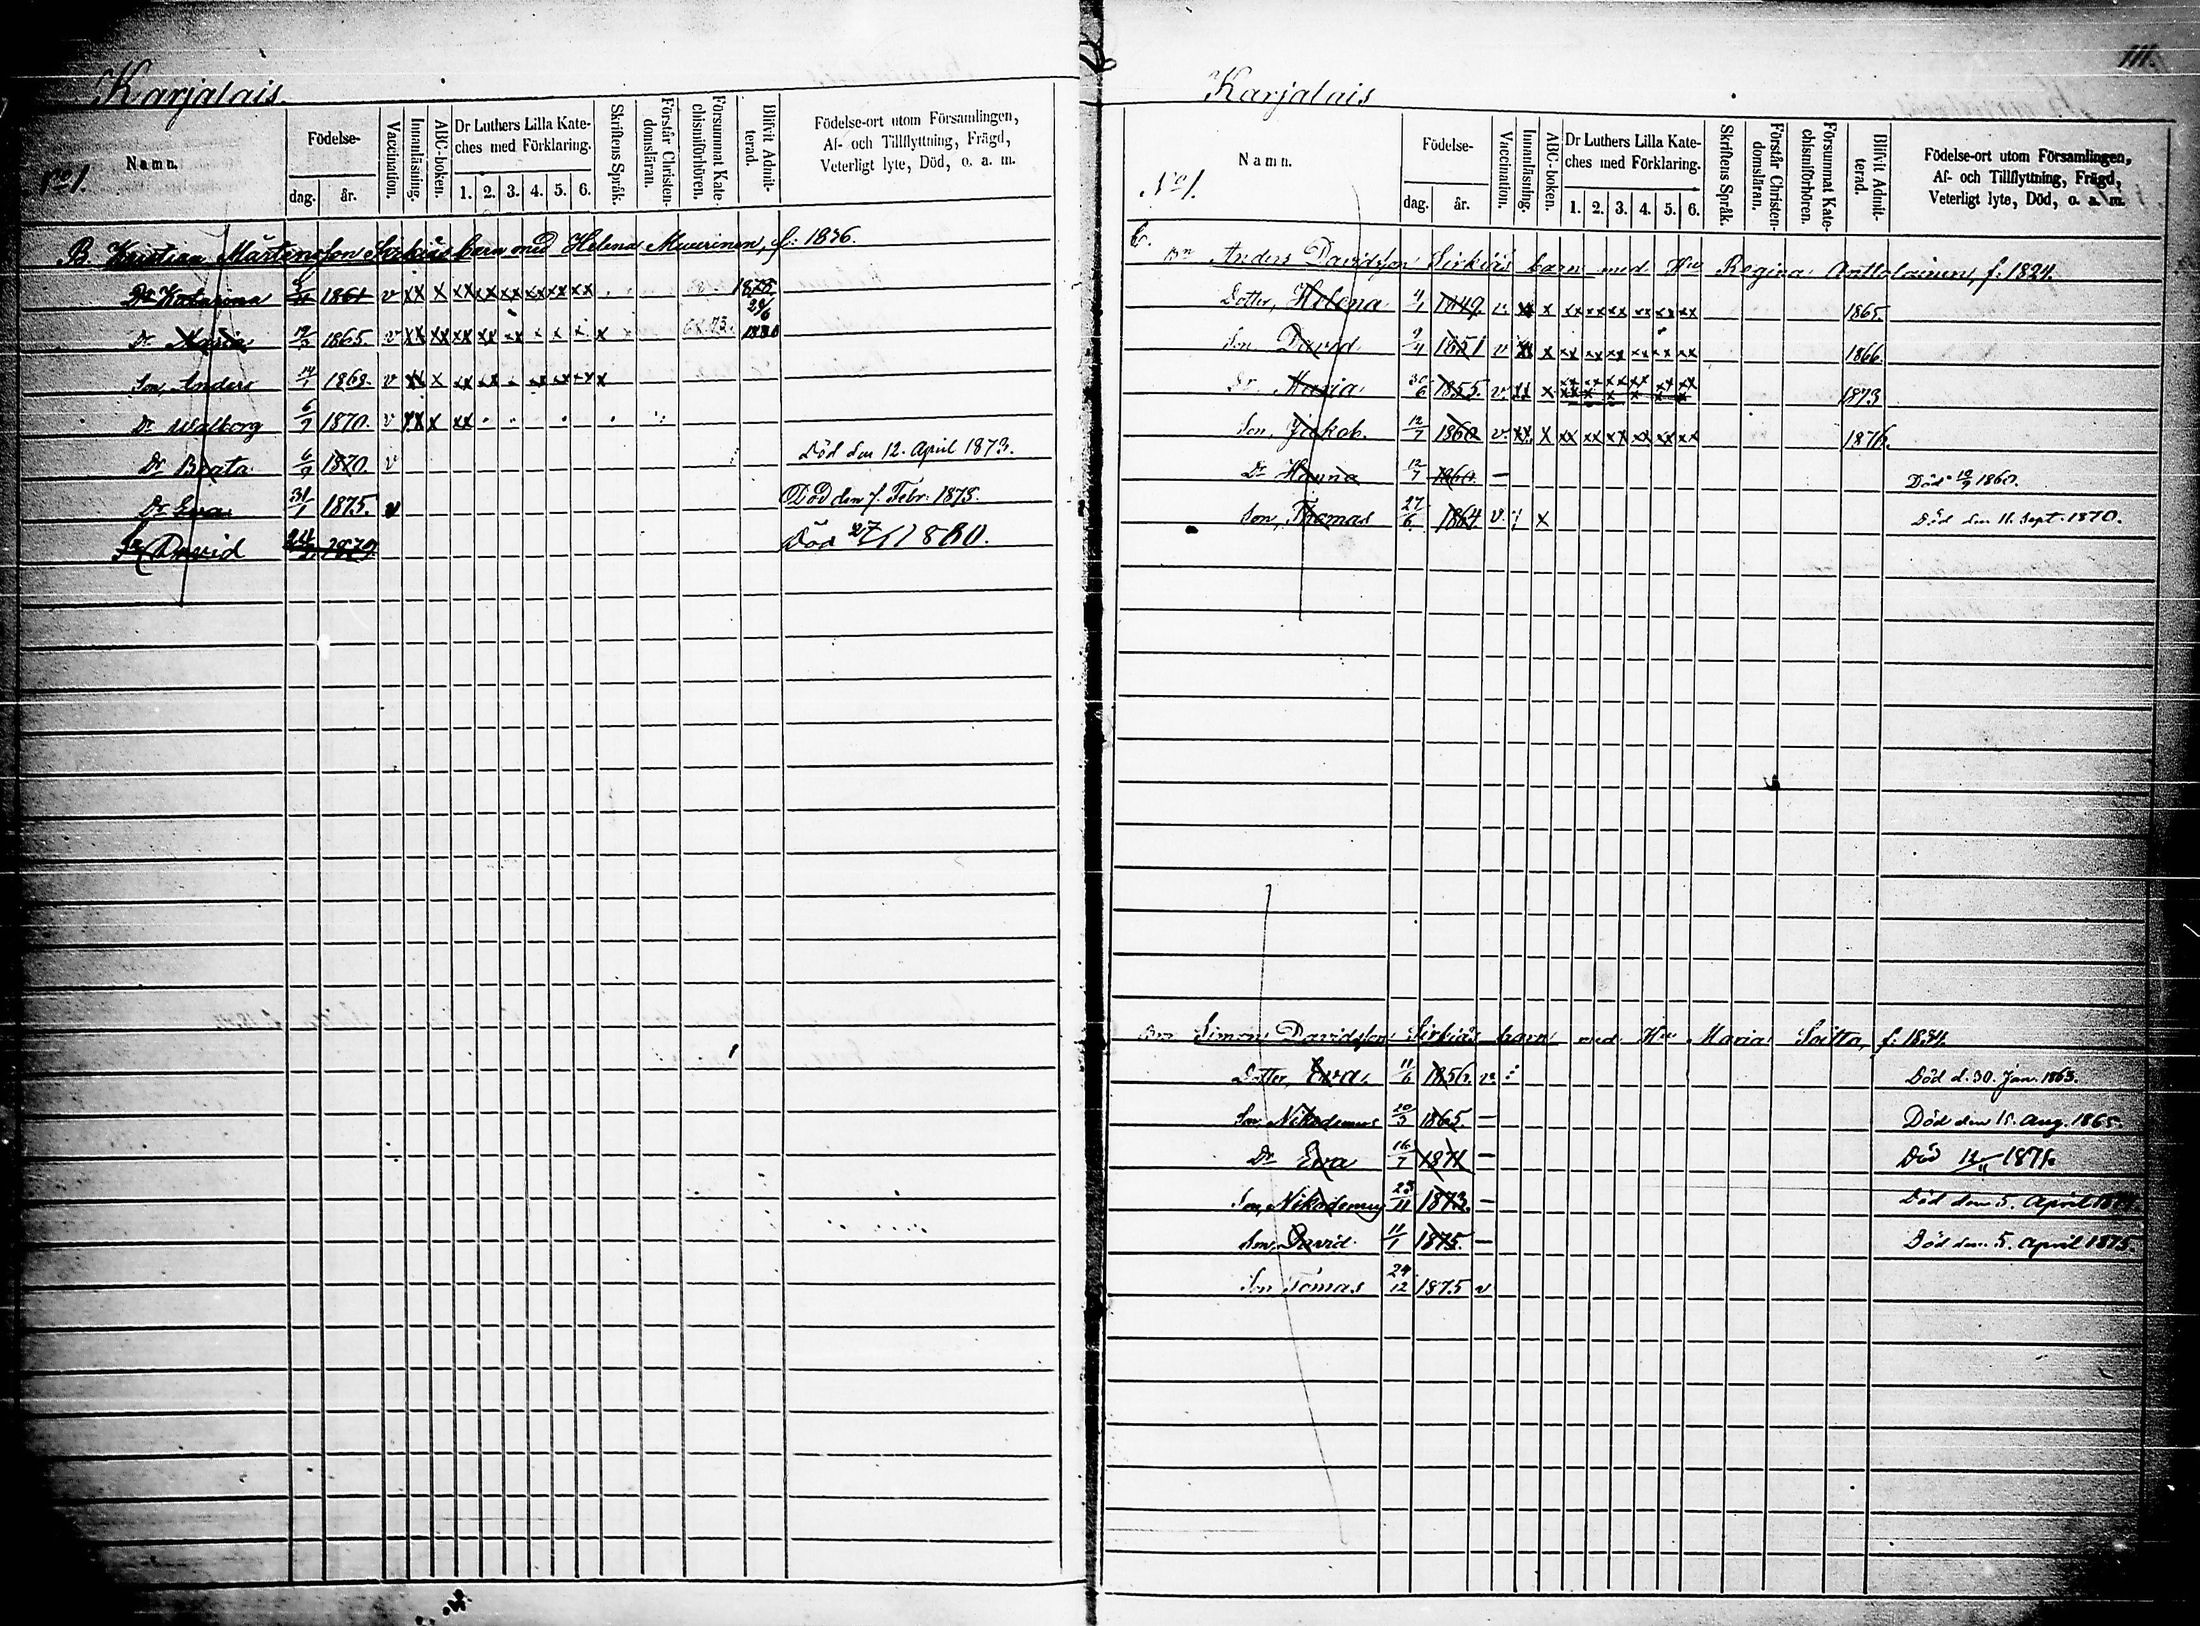 Karjalais.
No 1.
Namn.
Födelse-
dag. år.
Vaccination.
Innanläsning.
ABC-boken.
Dr Luthers Lilla Kate-
ches med Förklaring.
1. 2. 3. 4. 5. 6.
Skriftens Språk.
Förstår Christen-
domsläran.
Försummat Kate-
chismiförhören.
Blifvit Admit-
terad.
Födelse-ort utom Församlingen,
Af- och Tillflyttning, Frägd,
Veterligt lyte, Död, o. a. m.
B. Kristian Mårtensson Sirkiäs barn med Helena Muurinen, f: 1836.
Dr Katarina 1861 v xx x xx xx xx xx xx xx 1878.
Dr Maria 1865. v xx xx xx xx xx x x x x 68.73. 24/6 1880
Son, Anders 1868. v xx x xx xx xx xx xx x
Dr Walborg 6/9 1870. v xx x xx
Dr Beata 6/9 1870. v Död den 12. April 1873.
Dr Eva 31/1 1875. v Död den 7. Febr. 1875.
Sn David 1879 Död 27/1 1880.
111.
Karjalais
No 1.
Namn.
Födelse-
dag. år.
Vaccination.
Innanläsning.
ABC-boken.
Dr Luthers Lilla Kate-
ches med Förklaring.
1. 2. 3. 4. 5. 6.
Skriftens Språk.
Förstår Christen-
domsläran.
Försummat Kate-
chismiförhören.
Blifvit Admit-
terad.
Födelse-ort utom Församlingen,
Af- och Tillflyttning, Frägd,
Veterligt lyte, Död, o. a. m.
Anders Davidsson Sirkiäs barn med Hu Regina Anttolainen, f: 1824.
Dotter, Helena 4/1 1849. v. xx x xx xx xx xx xx xx 1865.
Son David 9/4 1851 v xx x xx xx xx xx xx xx 1866.
Dr Maria 30/6 1855. v. xx x xx xx xx xx xx xx 1873
Son, Jakob. 12/7 1860 v. xx x xx xx xx xx xx xx 1876.
Dr Hanna 12/7 1860. — Död 1860.
Son, Thomas 27/6 1864 v. x Död den 11. Sept. 1870.
Simon Davidsson Sirkiäs barn med Hu Maria Soitta, f: 1834.
Dotter, Eva, 11/6 1856. v. Död d. 30. Jan. 1863.
Son, Nikodemus 20/3 1865. — Död den 15. Aug. 1865.
Dr Eva 16/7 1871 — Död 12/11 1871.
Son, Nikodemus 23/11 1873. — Död den 5. April
Son, David 11/1 1875. — Död den 5. April 1875.
Son Tomas 24/12 1875 v